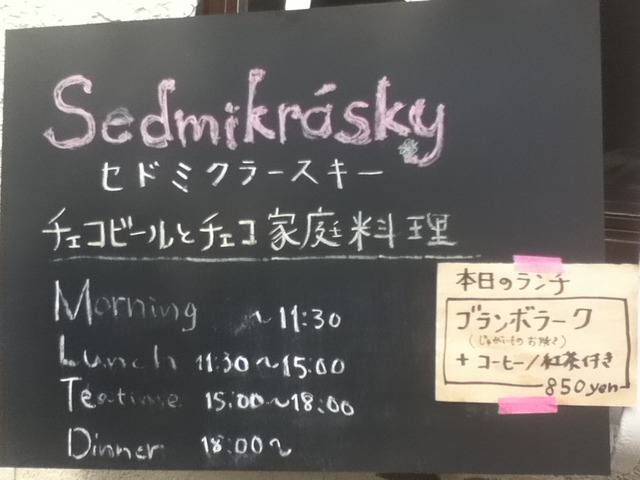 Sedmikrásky
セドミクラースキー
チェコビールとチェコ家庭料理
Morning ～11:30
Lunch 11:30～15:00
Teatime 15:00～18:00
Dinner 18:00～
本日のランチ
ブランボラーク
(じゃがいものお焼き)
+ コーヒー/紅茶付き
850yen